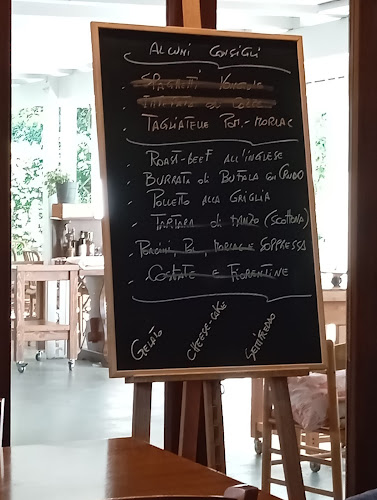 ALCUNI CONSIGLI
SPAGHETTI VONGOLE
TAGLIATELLE POM.-MORLAC
ROAST-BEEF ALL'INGLESE
BURRATA di BUFALA CON CRUDO
POLLETTO ALLA GRIGLIA
TARTARA di MANZO (SCOTTONA)
PORCINI, POL, MORLACCO SOPRESSA
COSTATE E FIORENTINE
GELATO
CHEESE-CAKE
SEMIFREDDO